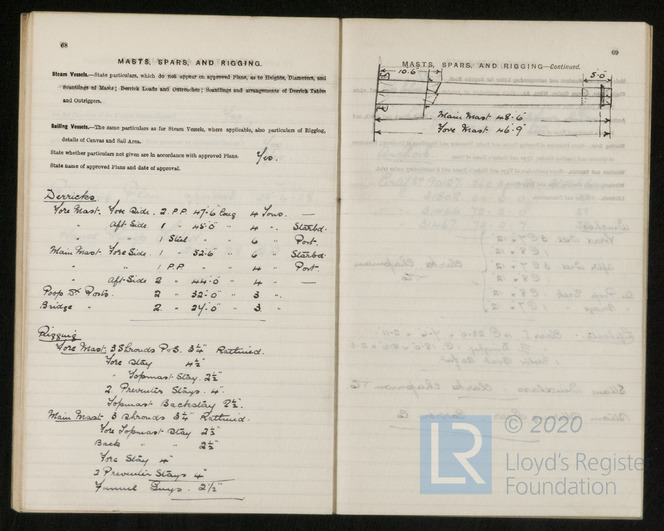 68
MASTS, SPARS, AND RIGGING.
Steam Vessels.—State particulars, which do not appear on approved Plans, as to Heights, Diameters, and
Scantlings of Masts; Derrick Loads and Outreaches; Scantlings and arrangements of Derrick Tables
and Outriggers.
Sailing Vessels.—The same particulars as for Steam Vessels, where applicable, also particulars of Rigging,
details of Canvas and Sail Area.
State whether particulars not given are in accordance with approved Plans.
State name of approved Plans and date of approval.
Derricks
Fore Mast. Fore Side. 2 P.P. 47'-6" long 4 Tons. —
" Aft Side 1 " 45'-0" " 4 " Starbd.
" " 1 Steel " " 6 " Port.
Main Mast Fore Side 1 " 52'-6" " 6 " Starbd
" " 1 P.P " " 4 " Port
" Aft Side 2 " 44'-0" " 4 " —
Poop Posts. 2 " 32'-0" " 3 "
Bridge " 2 " 24'-0" " 3 "
Rigging
Fore Mast. 3 Shrouds P&S. 3¼" Ratlined.
Fore Stay 4½"
" Topmast Stay. 2½"
2 Preventer Stays. 4"
Topmast Backstay 2½".
Main Mast 3 Shrouds 3¼" Ratlined.
Fore Topmast Stay 2½"
Back " " 2½"
Fore Stay 4"
2 Preventer Stays 4"
Funnel Guys. 2½"
69
MASTS, SPARS, AND RIGGING—Continued.
10.6
5.0
Main Mast 48.6"
Fore Mast 46.9"
© 2020
LR
Lloyd's Register
Foundation